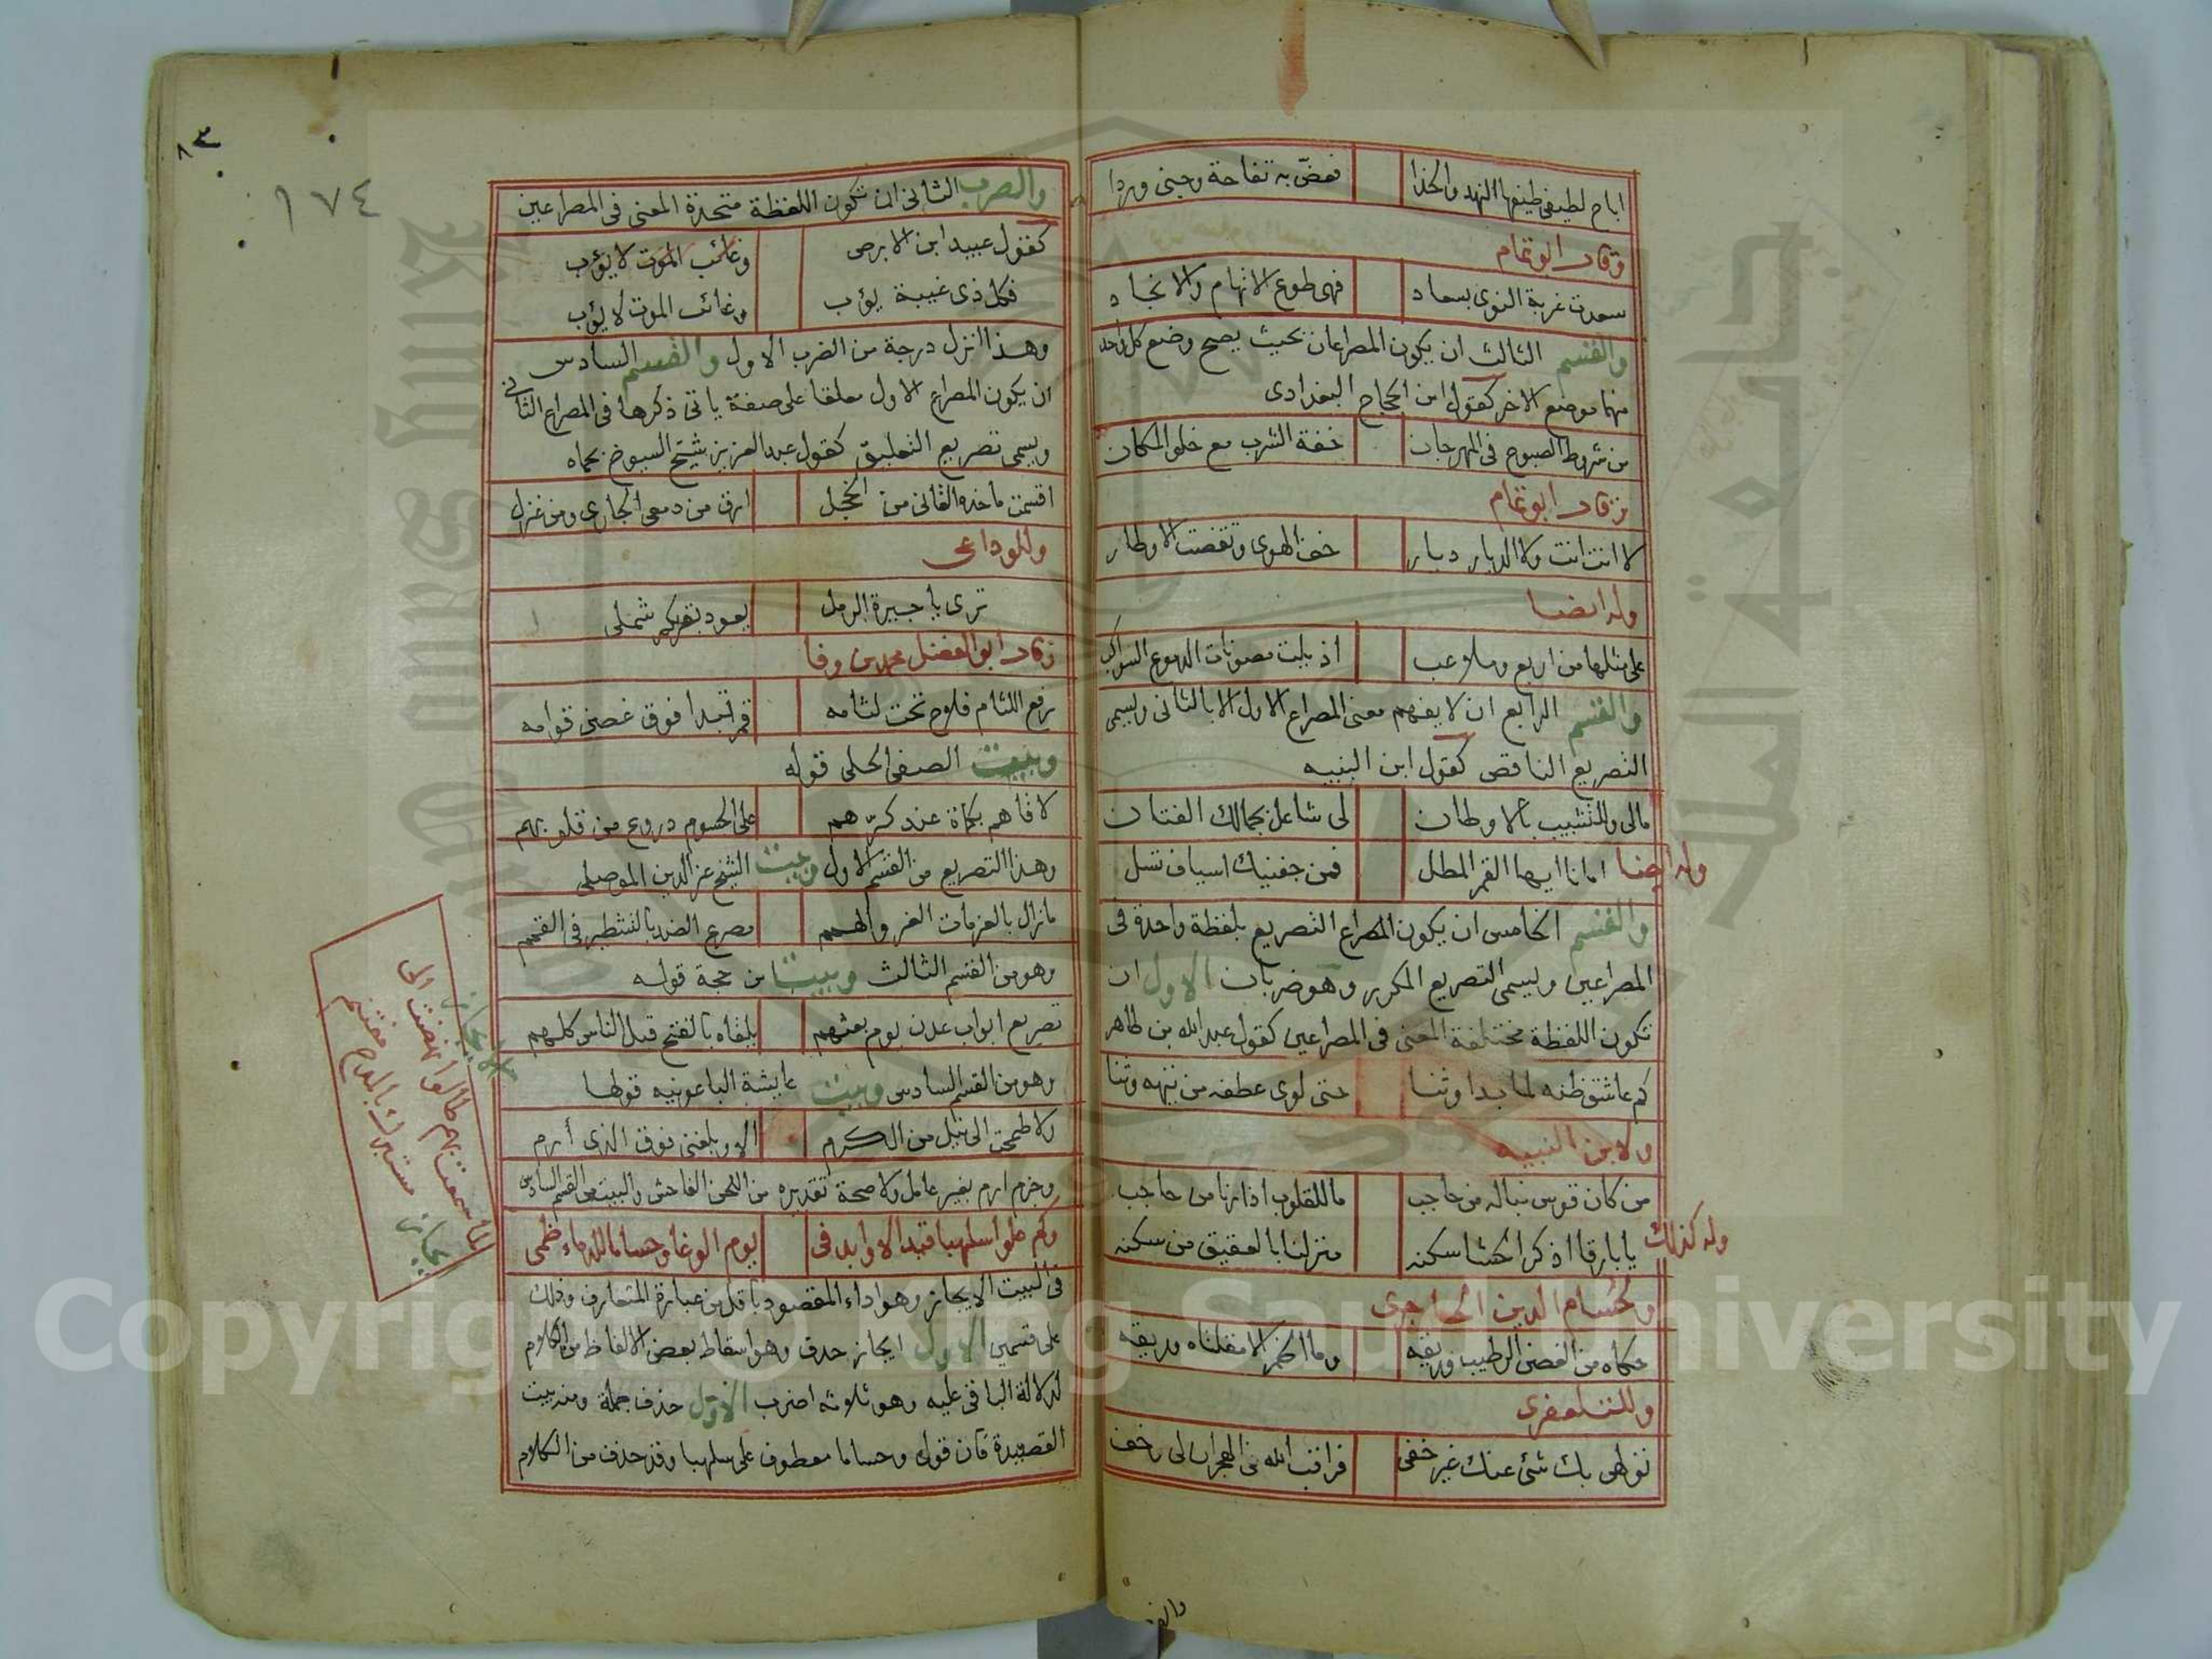 اباح لطيفى طيفها النهد والخدا فعض به تفاحة وجنى وردا
وقال ابو تمام
سعدت غربة النوى بسعاد فهى طوع الاتهام والانجاد
والقسم الثالث ان يكون المصراعان بحيث يصح وضع كل واحد
منهما موضع الاخر كقول ابن الحجاج البغدادى
من شروط الصبوح فى المهرجان خفة الشرب مع خلو المكان
وقال ابو تمام
لا انت انت ولا الديار ديار خف الهوى وتقضت الاوطار
وله ايضا
على مثلها من اربع وملاعب اذيلت مصونات الدموع السواكب
والقسم الرابع ان لا يفهم معنى المصراع الاول الا بالثانى ويسمى
التصريع الناقص كقول ابن النبيه
مالى وللتشبيب بالاوطان لى شاغل بجمالك الفتان
وله ايضا امانا ايها القمر المطل فمن جفنيك اسياف تسل
والقسم الخامس ان يكون المصراع التصريع بلفظة واحدة فى
المصراعين ويسمى التصريع المكرر وهو ضربان الاول ان
تكون اللفظة مختلفة المعنى فى المصراعين كقول عبد الله بن طاهر
كم عاشق ظنه لما بدا وثنا حتى لوى عطفه من تيهه وثنا
ولابن النبيه
من كان قوس نباله من حاجب ما للقلوب اذا رنا من حاجب
وله كذلك يا بارقا اذكر الحشا سكنه منزلنا بالعقيق من سكنه
ولحسام الدين الحاجرى
حكاه من الغصن الرطيب وريقه وما الخمر الا مقلتاه وريقه
وللتلعفرى
تولهى بك شئ عنك غير خفى فراقب الله فى الهجران لى وخف
والضر
٨٣
١٧٤
والضرب الثانى ان تكون اللفظة متحدة المعنى فى المصراعين
كقول عبيد ابن الابرص وغائب الموت لا يؤب
فكل ذى غيبة يؤب وغائب الموت لا يؤب
وهذا انزل درجة من الضرب الاول والقسم السادس
ان يكون المصراع الاول معلقا على صفة ياتى ذكرها فى المصراع الثانى
ويسمى تصريع التعليق كقول عبد العزيز شيخ الشيوخ بحماه
اقسمت ما خده القانى من الخجل ارق من دمعى الجارى ومن غزل
وللوداعى
ترى يا جيرة الرمل يعود بقربكم شملى
وقال ابو الفضل محمد بن وفا
رفع اللثام فلاح تحت لثامه قمر تبدا فوق غصن قوامه
وبيت الصفى الحلى قوله
لاقاهم بكماة عند كرهم على الجسوم دروع من قلوبهم
وهذا التصريع من القسم الاول وبيت الشيخ عز الدين الموصلى
مازال بالعزمات الغر والهمم مصرع الضد بالتشطير فى القمم
وهو من القسم الثالث وبيت ابن حجة قوله
تصريع ابواب عدن يوم بعثهم يلقاه بالفتح قبل الناس كلهم
وهو من القسم السادس وبيت عايشة الباعونيه قولها
ولا طمحت الى نيل من الكرم الا وبلغنى فوق الذى أرم
وجزم ارم بغير عامل ولا صحة تقديره من اللحن الفاحش والبيت من القسم السادس
وكم علوا سلهبا قيد الاوابد فى يوم الوغا وحساما للدماء ظمى
فى البيت الايجاز وهو اداء المقصود باقل من عبارة المتعارف وذلك
على قسمين الاول ايجاز حذف وهو اسقاط بعض الالفاظ من الكلام
لدلالة الباقى عليه وهو ثلاثه اضرب الاول حذف جملة ومنه بيت
القصيدة فان قوله وحساما معطوف على سلهبا وقد حذف من الكلام
الايجاز
Copyright © King Saud University
جامعة الملك سعود
King Saud University
1957